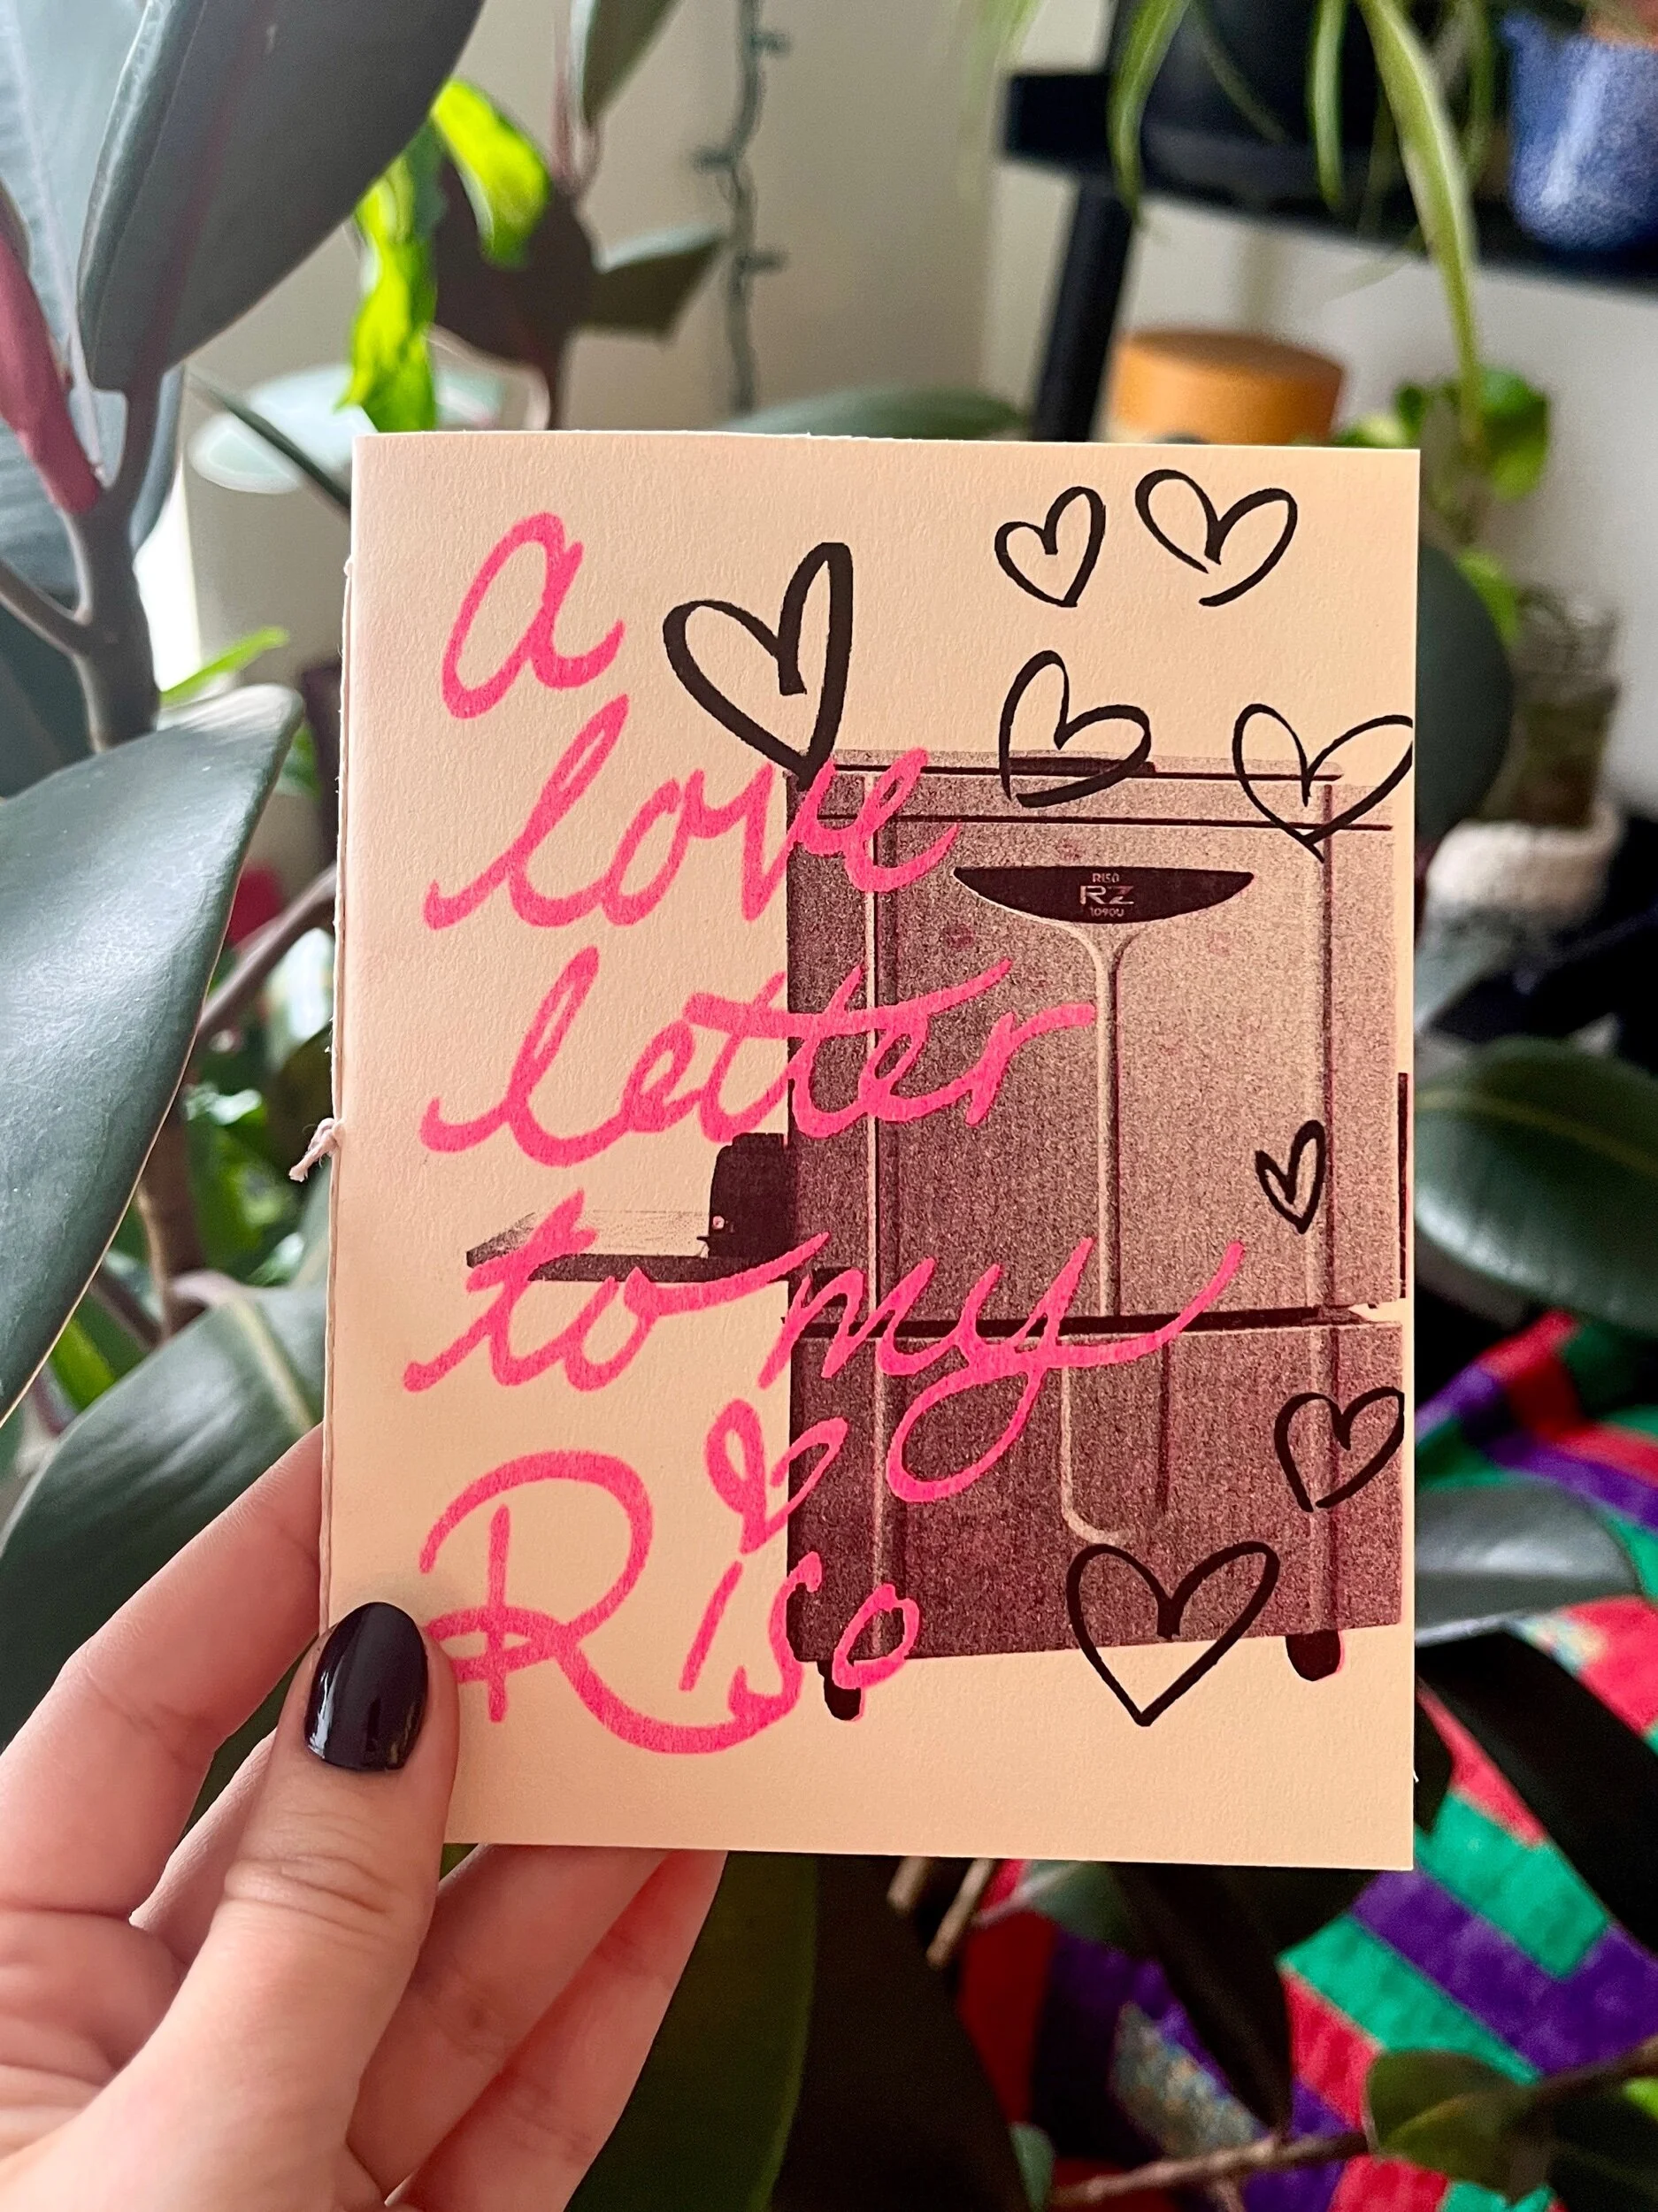 a
love
letter
to my
Riso
RISO
RZ
1090U